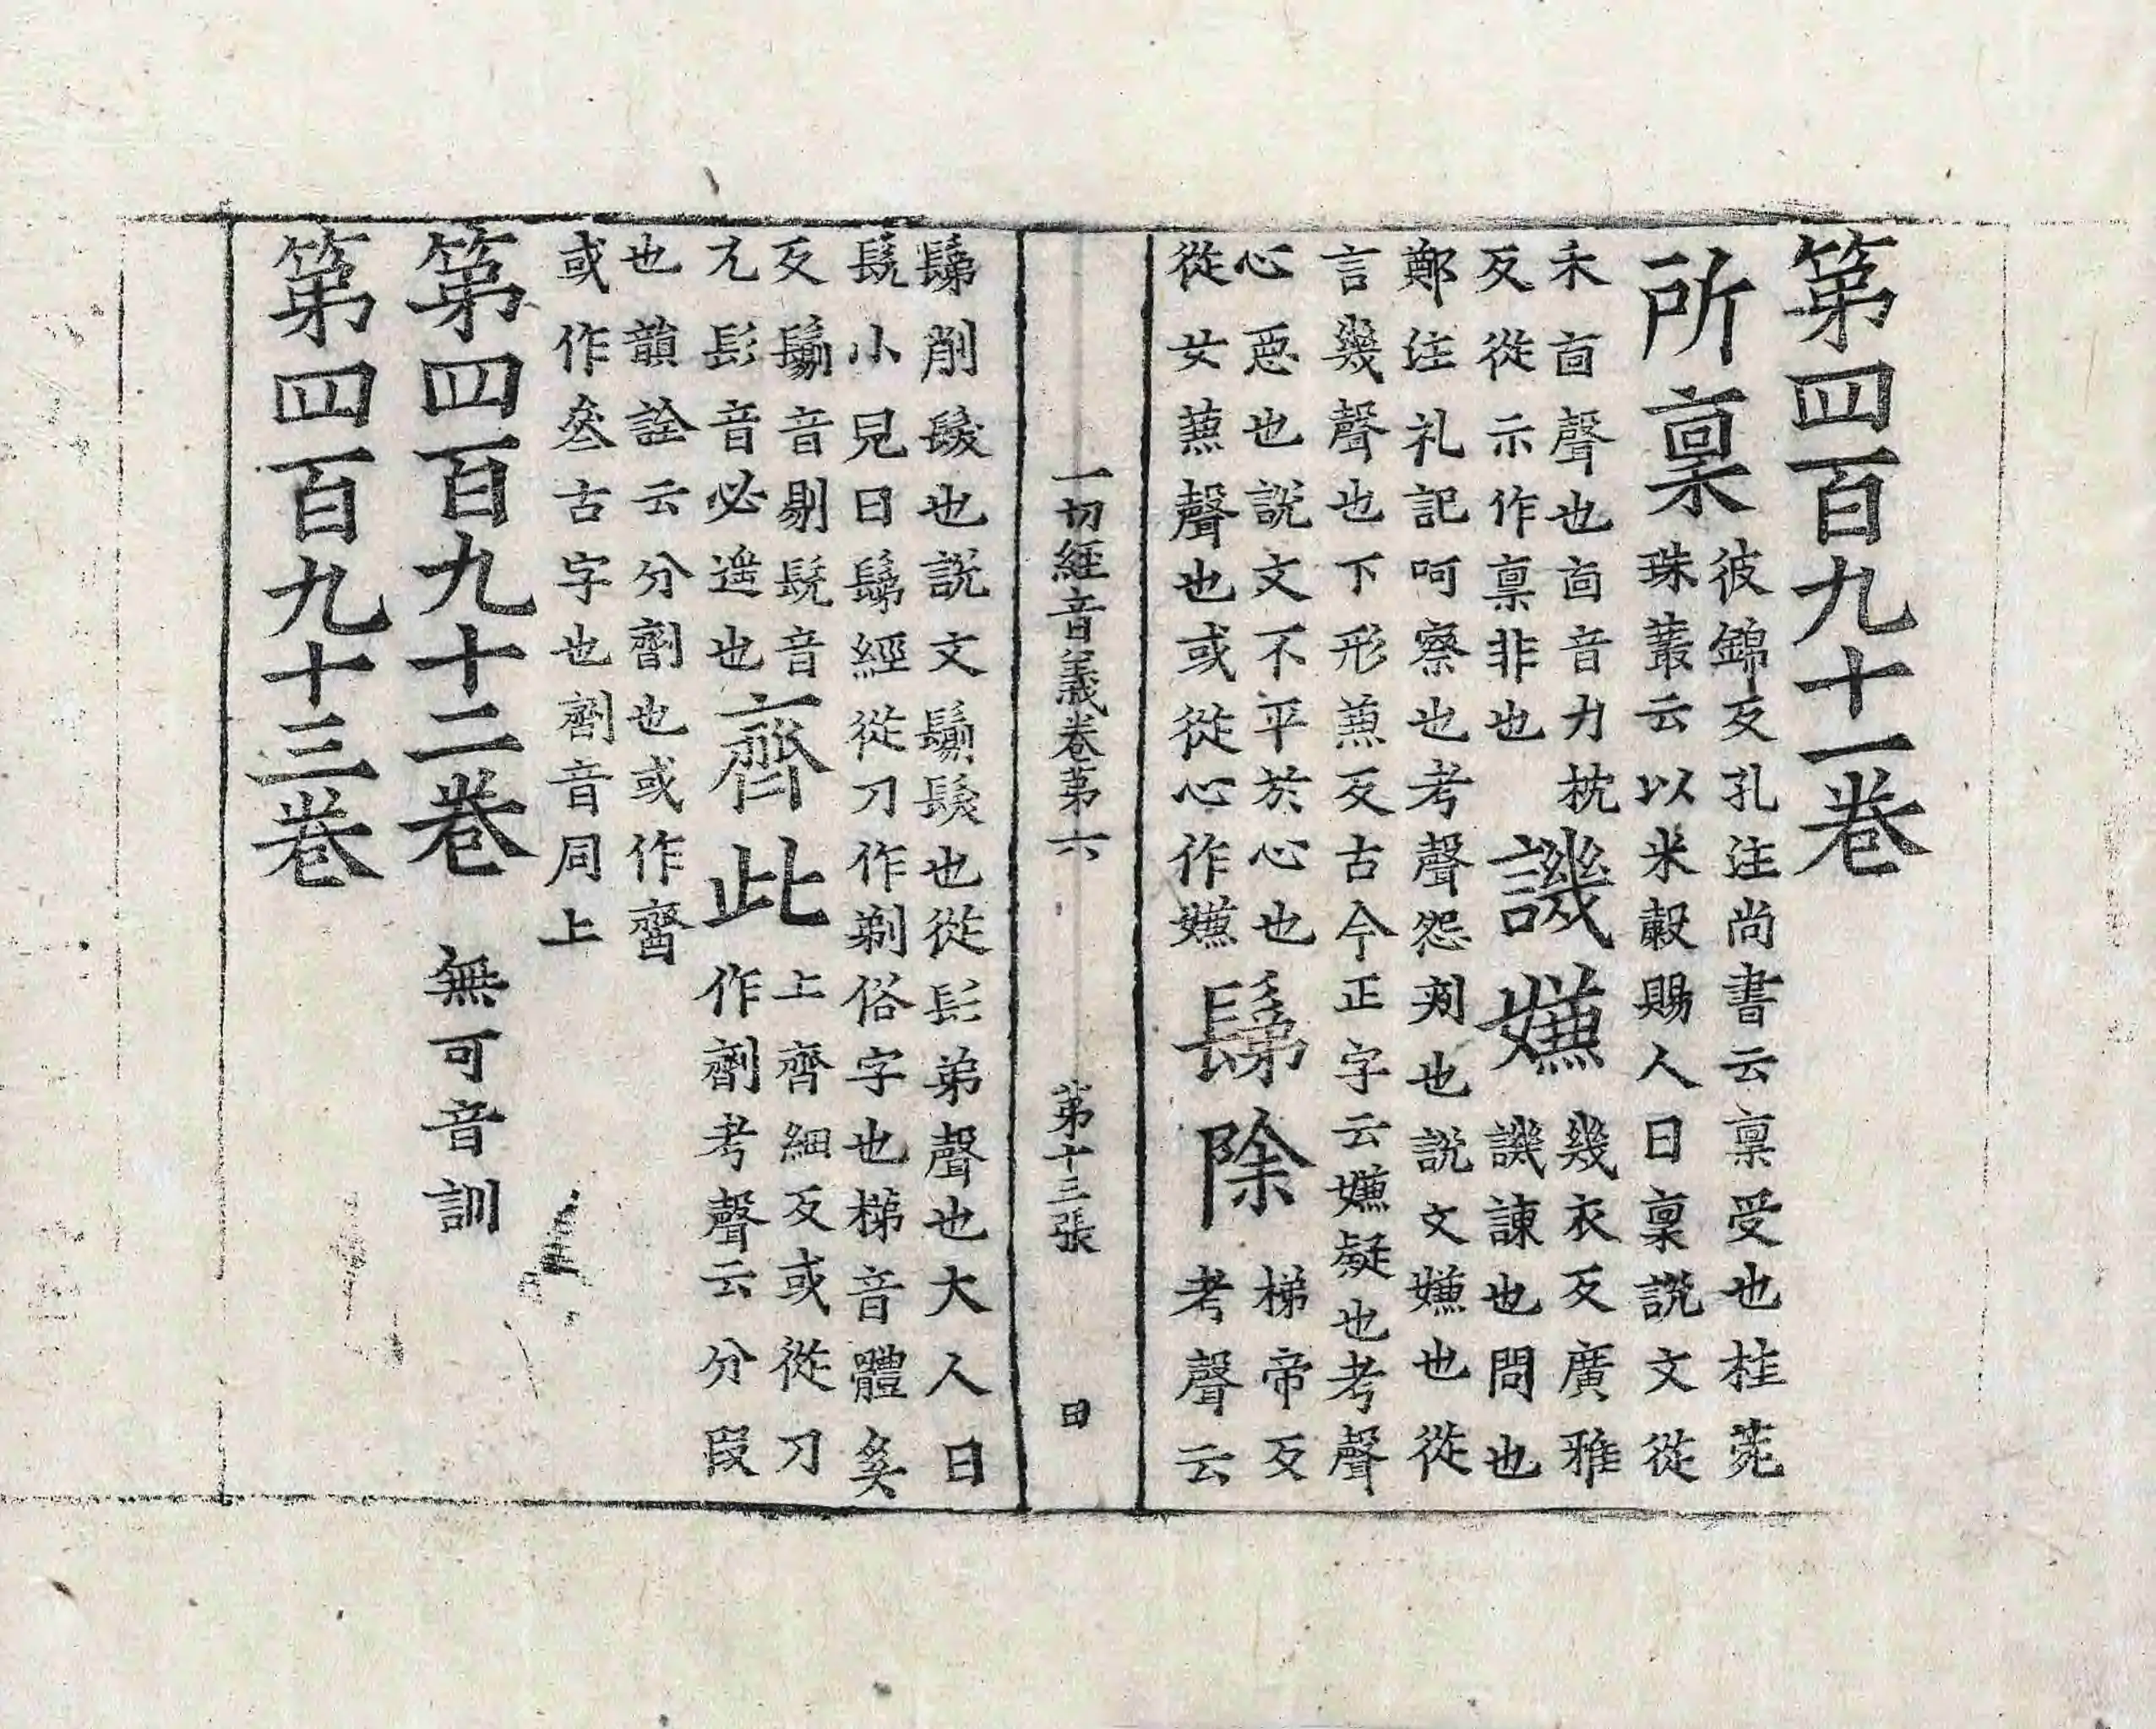 第四百九十一卷
所稟 彼錦反孔注尚書云稟受也桂菀
珠叢云以米穀賜人曰稟說文從
禾㐭聲也㐭音力枕
反從示作禀非也
譏嫌 幾衣反廣雅
譏諫也問也
鄭注礼記呵察也考聲怨刺也說文嫌也從
言幾聲也下形蒹反古今正字云嫌疑也考聲
心惡也說文不平於心也
從女蒹聲也或從心作㜞
鬀除 梯帝反
考聲云
鬀削髮也說文鬄髮也從髟弟聲也大人曰
髡小兒曰鬀經從刀作剃俗字也梯音體奚
反鬄音剔髡音
兀髟音必遥也
齊此 上齊細反或從刀
作劑考聲云分段
也韻詮云分劑也或作齌
或作亝古字也劑音同上
第四百九十二卷 無可音訓
第四百九十三卷
一切經音義卷第六 第十三張 日